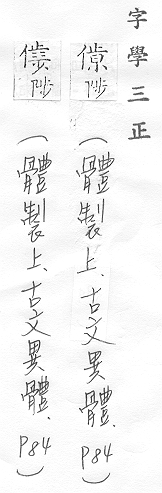 字學三正
陟（體製上、古文異體、P84）
陟（體製上、古文異體、P84）